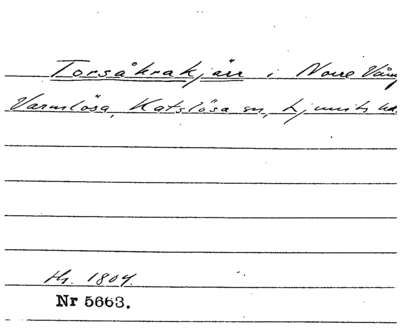 Torsåkrakjärr i Norre Vång
Varmlösa, Katslösa sn, Ljunits hd.
Hs. 1804.
Nr 5663.